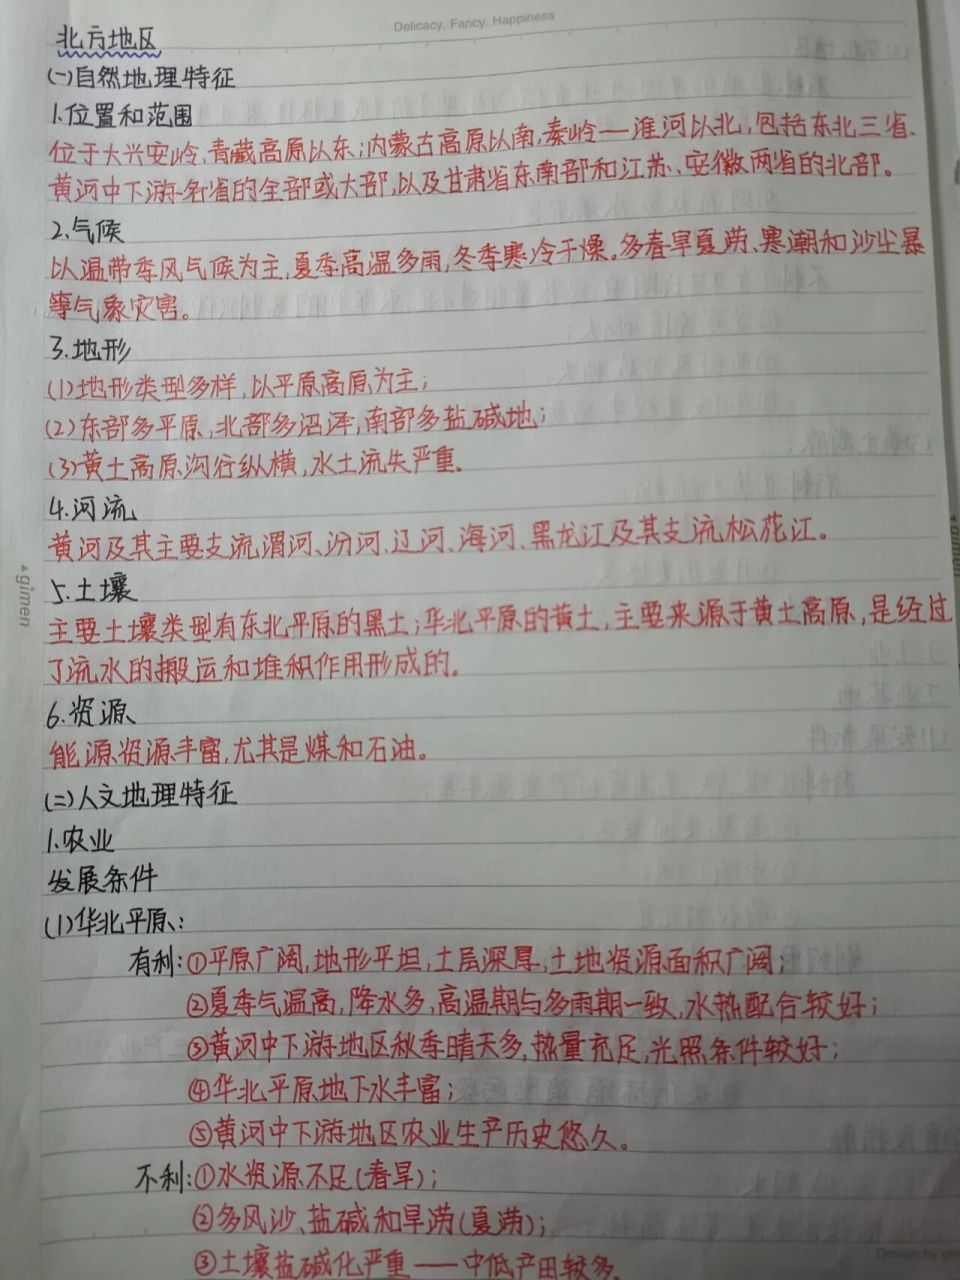 Delicacy. Fancy. Happiness
北方地区
(一)自然地理特征
1.位置和范围
位于大兴安岭,青藏高原以东;内蒙古高原以南,秦岭—淮河以北,包括东北三省、
黄河中下游各省的全部或大部,以及甘肃省东南部和江苏、安徽两省的北部。
2.气候
以温带季风气候为主,夏季高温多雨,冬季寒冷干燥。多春旱夏涝、寒潮和沙尘暴
等气象灾害。
3.地形
(1)地形类型多样,以平原高原为主;
(2)东部多平原,北部多沼泽,南部多盐碱地;
(3)黄土高原沟行纵横,水土流失严重。
4.河流
黄河及其主要支流渭河、汾河、辽河、海河、黑龙江及其支流松花江。
gimen
5.土壤
主要土壤类型有东北平原的黑土;华北平原的黄土,主要来源于黄土高原,是经过
了流水的搬运和堆积作用形成的。
6.资源
能源资源丰富,尤其是煤和石油。
(二)人文地理特征
1.农业
发展条件
(1)华北平原:
有利:①平原广阔,地形平坦,土层深厚,土地资源面积广阔;
②夏季气温高,降水多,高温期与多雨期一致,水热配合较好;
③黄河中下游地区秋季晴天多,热量充足,光照条件较好;
④华北平原地下水丰富;
⑤黄河中下游地区农业生产历史悠久。
不利:①水资源不足(春旱);
②多风沙、盐碱和旱涝(夏涝);
③土壤盐碱化严重——中低产田较多。